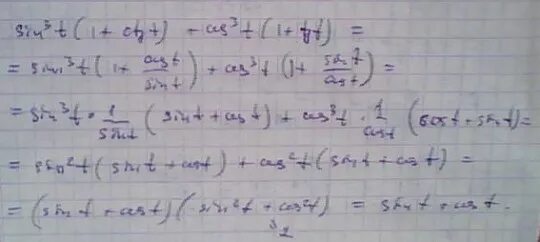 sin³t(1+ctgt) + cos³t(1+tgt) =
= sin³t(1+ cost/sint) + cos³t(1+ sint/cost) =
= sin³t · 1/sint (sint+cost) + cos³t · 1/cost (cost+sint) =
= sin²t(sint+cost) + cos²t(sint+cost) =
= (sint+cost)(sin²t+cos²t) = sint+cost.